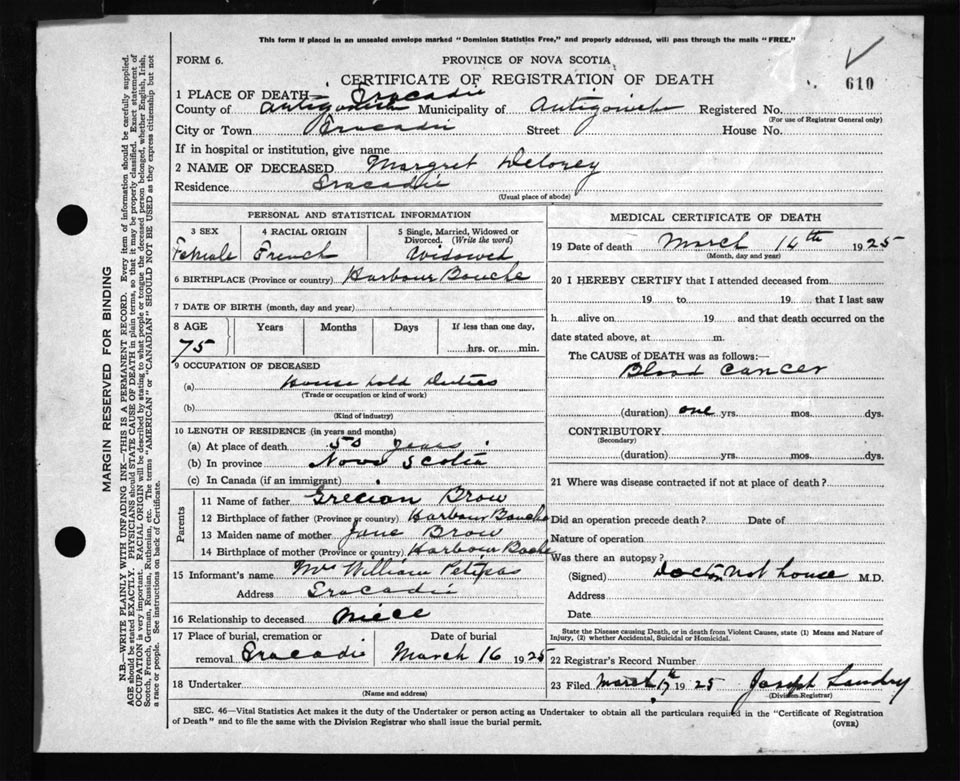 This form if placed in an unsealed envelope marked "Dominion Statistics Free," and properly addressed, will pass through the mails "FREE."
FORM 6.
PROVINCE OF NOVA SCOTIA
CERTIFICATE OF REGISTRATION OF DEATH
610
1 PLACE OF DEATH— Tracadie
County of Antigonish Municipality of Antigonish Registered No.
(For use of Registrar General only)
City or Town Tracadie Street House No.
If in hospital or institution, give name
2 NAME OF DECEASED Margret Deloney
Residence Tracadie
(Usual place of abode)
PERSONAL AND STATISTICAL INFORMATION
3 SEX 4 RACIAL ORIGIN 5 Single, Married, Widowed or
Divorced. (Write the word)
Female French Widowed
6 BIRTHPLACE (Province or country) Harbour Bouche
7 DATE OF BIRTH (month, day and year)
8 AGE Years Months Days If less than one day,
75 hrs. or min.
9 OCCUPATION OF DECEASED
(a) House hold Duties
(Trade or occupation or kind of work)
(b)
(Kind of industry)
10 LENGTH OF RESIDENCE (in years and months)
(a) At place of death 50 years
(b) In province Nova Scotia
(c) In Canada (if an immigrant)
Parents
11 Name of father Grecian Brow
12 Birthplace of father (Province or country) Harbour Bouche
13 Maiden name of mother Jane Brow
14 Birthplace of mother (Province or country) Harbour Boche
15 Informant's name Mrs William Petipas
Address Tracadie
16 Relationship to deceased niece
17 Place of burial, cremation or Date of burial
removal Tracadie March 16 1925
18 Undertaker
(Name and address)
MEDICAL CERTIFICATE OF DEATH
19 Date of death March 14th 1925
(Month, day and year)
20 I HEREBY CERTIFY that I attended deceased from
19 to 19 that I last saw
h alive on 19 and that death occurred on the
date stated above, at m.
The CAUSE of DEATH was as follows:—
Blood Cancer
(duration) one yrs. mos. dys.
CONTRIBUTORY
(Secondary)
(duration) yrs. mos. dys.
21 Where was disease contracted if not at place of death?
Did an operation precede death? Date of
Nature of operation
Was there an autopsy?
(Signed) Doctor Not house M.D.
Address
Date
State the Disease causing Death, or in death from Violent Causes, state (1) Means and Nature of
Injury, (2) whether Accidental, Suicidal or Homicidal.
22 Registrar's Record Number
23 Filed March 17th 1925 Joseph Landry
(Division Registrar)
SEC. 46—Vital Statistics Act makes it the duty of the Undertaker or person acting as Undertaker to obtain all the particulars required in the "Certificate of Registration
of Death" and to file the same with the Division Registrar who shall issue the burial permit.
(OVER)
MARGIN RESERVED FOR BINDING
N.B.—WRITE PLAINLY WITH UNFADING INK—THIS IS A PERMANENT RECORD. Every item of information should be carefully supplied.
AGE should be stated EXACTLY. PHYSICIANS should STATE CAUSE OF DEATH in plain terms, so that it may be properly classified. Exact statement of
OCCUPATION is very important. RACIAL ORIGIN will be described by stating to what people or tongue the deceased person belonged, whether English, Irish,
Scotch, French, German, Russian, Ruthenian, etc. The terms "AMERICAN" or "CANADIAN" SHOULD NOT BE USED as they express citizenship but not
a race or people. See instructions on back of Certificate.